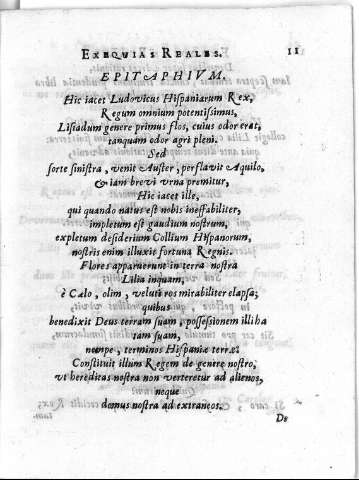 EXEQUIAS REALES. 11
EPITAPHIVM.
Hic iacet Ludovicus Hiſpaniarum Rex,
Regum omnium potentiſſimus,
Liſiadum genere primus flos, cuius odor erat,
tanquam odor agri pleni.
Sed
ſorte ſiniſtra, venit Auſter, perflavit Aquilo,
& iam brevi vrna premitur,
Hic iacet ille,
qui quando natus eſt nobis ineffabiliter,
impletum eſt gaudium noſtrum,
expletum deſiderium Collium Hiſpanorum,
noſtris enim illuxit fortuna Regnis.
Flores apparuerunt in terra noſtra
Lilia inquam,
è Cælo, olim, veluti ros mirabiliter elapſa;
quibus
benedixit Deus terram ſuam, poſſeſsionem illiba
tam ſuam,
nempe, terminos Hiſpaniæ terræ:
Conſtituit illum Regem de genere noſtro,
vt hereditas noſtra non verteretur ad alienos,
neque
domus noſtra ad extraneos.
De